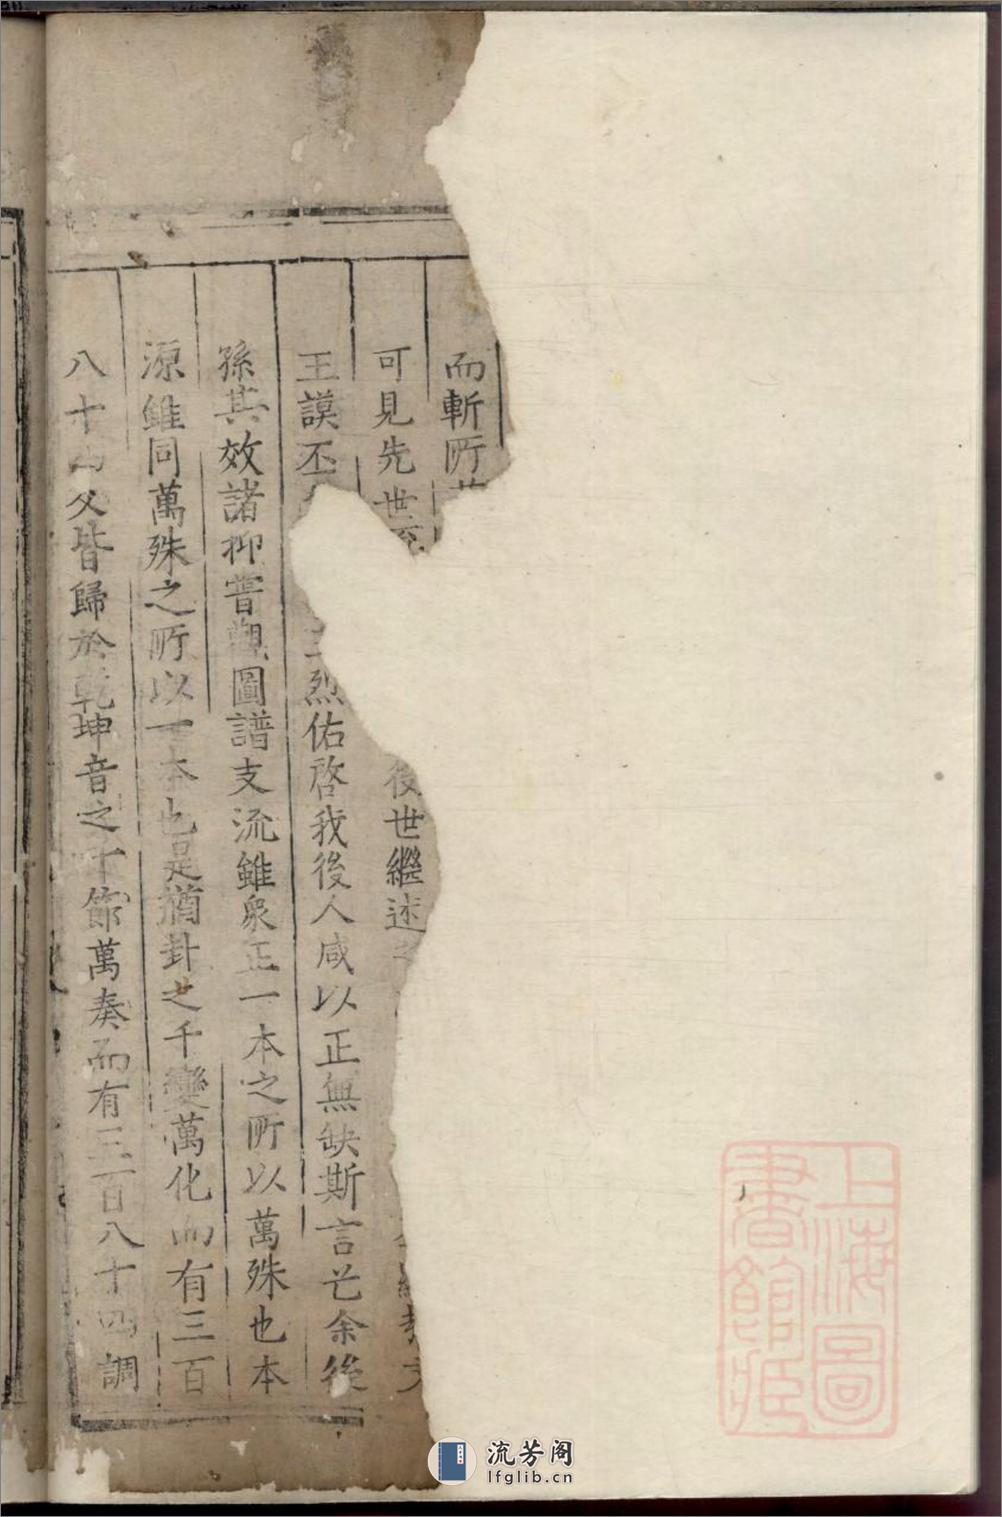 而斬所
可見先世
後世繼述
王謨丕
烈佑啓我後人咸以正無缺斯言也余後
孫其效諸抑嘗觀圖譜支流雖衆正一本之所以萬殊也本
源雖同萬殊之所以一本也是猶卦之千變萬化而有三百
八十四爻皆歸於乾坤音之千節萬奏而有三百八十四調
上海圖
書館藏
流芳阁
lfglib.cn